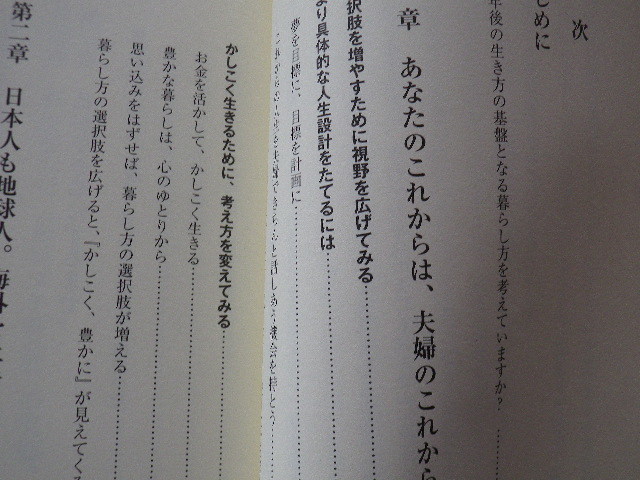 次
じめに
年後の生き方の基盤となる暮らし方を考えていますか?
章 あなたのこれからは、夫婦のこれから
択肢を増やすために視野を広げてみる
より具体的な人生設計をたてるには
夢を目標に、目標を計画に
かしこく生きるために、考え方を変えてみる
お金を活かして、かしこく生きる
豊かな暮らしは、心のゆとりから
思い込みをはずせば、暮らし方の選択肢が増える
暮らし方の選択肢を広げると、『かしこく、豊かに』が見えてくる
第二章 日本人も地球人。海外